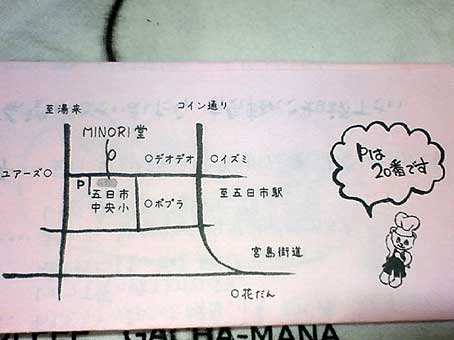 至湯来
コイン通り
MINORI堂
ユアーズ○
○デオデオ
○イズミ
P
五日市
中央小
○ポプラ
至五日市駅
宮島街道
○花だん
Pは
20番です
GACHA-MANA